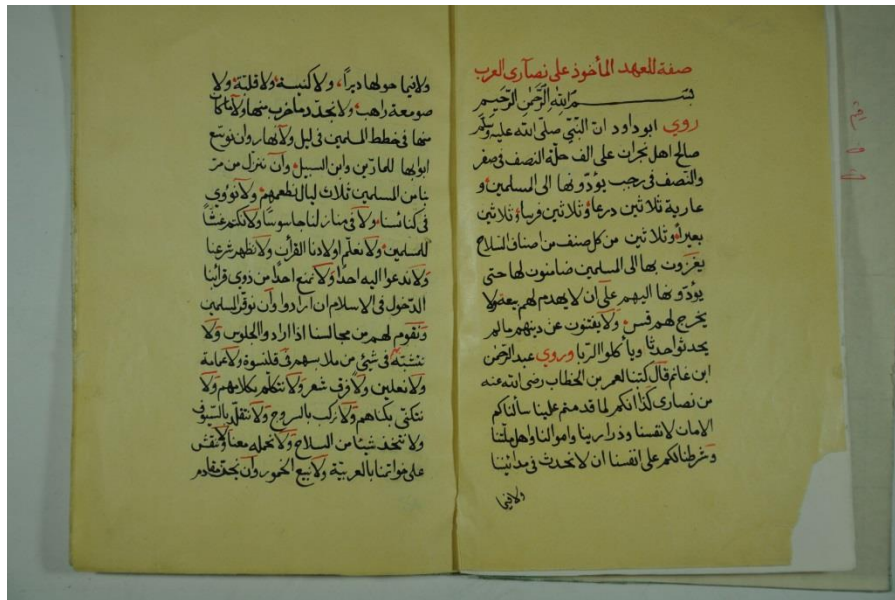 صفة للعهد المأخوذ على نصارى العرب
بسم الله الرحمن الرحيم
روي ابو داود ان النبي صلى الله عليه وسلم
صالح اهل نجران على الف حلة النصف في صفر
والنصف في رجب يؤدونها الى المسلمين و
عارية ثلاثين درعا وثلاثين فرسا وثلاثين
بعيرا وثلاثين من كل صنف من اصناف السلاح
يغزون بها الى المسلمين ضامنون لها حتى
يؤدونها اليهم على ان لا يهدم لهم بيعة ولا
يخرج لهم قس ولا يفتنون عن دينهم مالم
يحدثوا حدثا ويأكلوا الربا وروي عبد الرحمن
ابن غانم قال كتبنا لعمر بن الخطاب رضي الله عنه
من نصارى كذا انكم لما قدمتم علينا سالناكم
الامان لانفسنا وذرارينا واموالنا واهل ملتنا
وشرطنا لكم على انفسنا ان لا نحدث في مدائننا
ولا فيما
ولا فيما حولها ديرا ولا كنيسة ولا قلبة ولا
صومعة راهب ولا نجدد ما خرب منها ولا ما كان
منها في خطط المسلمين في ليل ولا نهار وان نوسع
ابوابها للمارين وابن السبيل وان ننزل من مر
بنا من المسلمين ثلاث ليال نطعمهم ولا نووي
في كنائسنا ولا في منازلنا جاسوسا ولا نكتم غشا
للمسلمين ولا نعلم اولادنا القرآن ولا نظهر شرعنا
ولا ندعوا اليه احدا ولا نمنع احدا من ذوي قرابتنا
الدخول في الاسلام ان ارادوا وان نوقر المسلمين
ونقوم لهم من مجالسنا اذا ارادوا الجلوس ولا
نتشبه في شيئ من ملابسهم في قلنسوة ولا عمامة
ولا نعلين ولا فرق شعر ولا نتكلم بكلامهم ولا
نتكنى بكناهم ولا نركب بالسروج ولا نتقلد بالسيوف
ولا نتخذ شيئا من السلاح ولا نحمله معنا ولا ننقش
على خواتمنا بالعربية ولا نبيع الخمور وان نجز مقادم